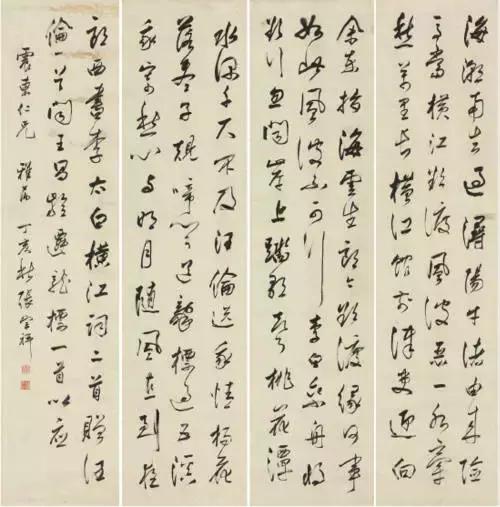 海潮南去過潯陽牛渚由來險
馬當橫江欲渡風波惡一水牽
愁萬里長橫江館前津吏迎向
余東指海雲生郎今欲渡緣何事
如此風波不可行李白乘舟將
欲行忽聞岸上踏歌聲桃花潭
水深千尺不及汪倫送我情楊花
落盡子規啼聞道龍標過五溪
我寄愁心与明月隨風直到夜
郎西書李太白橫江詞二首贈汪
倫一首聞王昌齡遷龍標一首以應
震東仁兄 雅屬 丁亥秋張宗祥